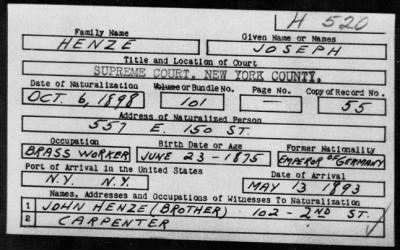 H 520
Family Name Given Name or Names
HENZE JOSEPH
Title and Location of Court
SUPREME COURT, NEW YORK COUNTY.
Date of Naturalization Volume or Bundle No. Page No. Copy of Record No.
OCT. 6, 1898 101 — 55
Address of Naturalized Person
557 E. 150 ST.
Occupation Birth Date or Age Former Nationality
BRASS WORKER JUNE 23-1875 EMPEROR OF GERMANY
Port of Arrival in the United States Date of Arrival
N.Y. N.Y. MAY 13 1893
Names, Addresses and Occupations of Witnesses To Naturalization
1 JOHN HENZE (BROTHER) 102-2ND ST.
2 CARPENTER